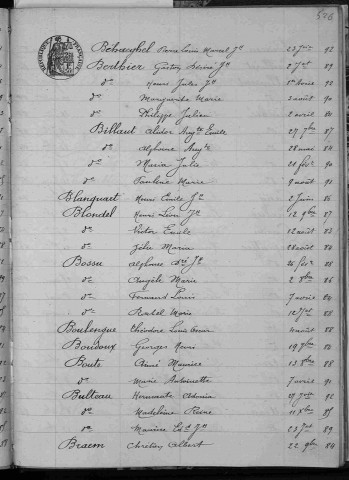 Behaeghel Pierre Louis Marcel Jh 23 Jer 92
Berthier Gaston Désiré Jh 2 Jet 89
do Henri Jules Jh 1er Avril 90
do Marguerite Marie 3 août 90
do Philippe Julien 2 avril 84
Billaut Alidor Augte Emile 27 7bre 87
do Alphonse Augte 28 mai 84
do Maria Julie 21 fév 90
do Pauline Marie 9 août 91
Blanquart Henri Emile Jh 2 Juin 86
Blondel Henri Léon Jh 12 9bre 87
do Victor Emile 12 août 83
do Zélie Maria 28 août 84
Bossu Alphonse Jh 26 fév 88
do Angèle Marie 2 8bre 86
do Fernand Louis 7 avril 84
do Marie 12 Jet 88
Boulengue Théodore Louis 4 août 88
Boudoux Georges Henri 19 7bre 86
Bouts Aimé Maurice 13 8bre 88
do Marie Antoinette 7 avril 91
Bulteau Hermante Adonia 27 Jer 92
do Madeleine Reine 11 Xbre 85
do Maurice Ed. Jh 23 Jet 89
Braem Chrétien Albert 22 9bre 84